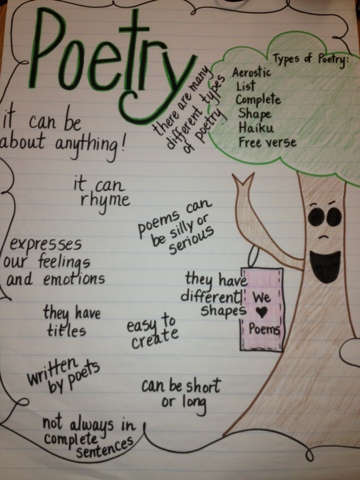 Poetry
there are many
different types
of poetry
Types of Poetry:
Acrostic
List
Complete
Shape
Haiku
Free verse
it can be
about anything!
it can
rhyme
poems can
be silly or
serious
expresses
our feelings
and emotions
they have
different
shapes
We
♥
Poems
they have
titles
easy to
create
written
by poets
can be short
or long
not always in
complete
sentences